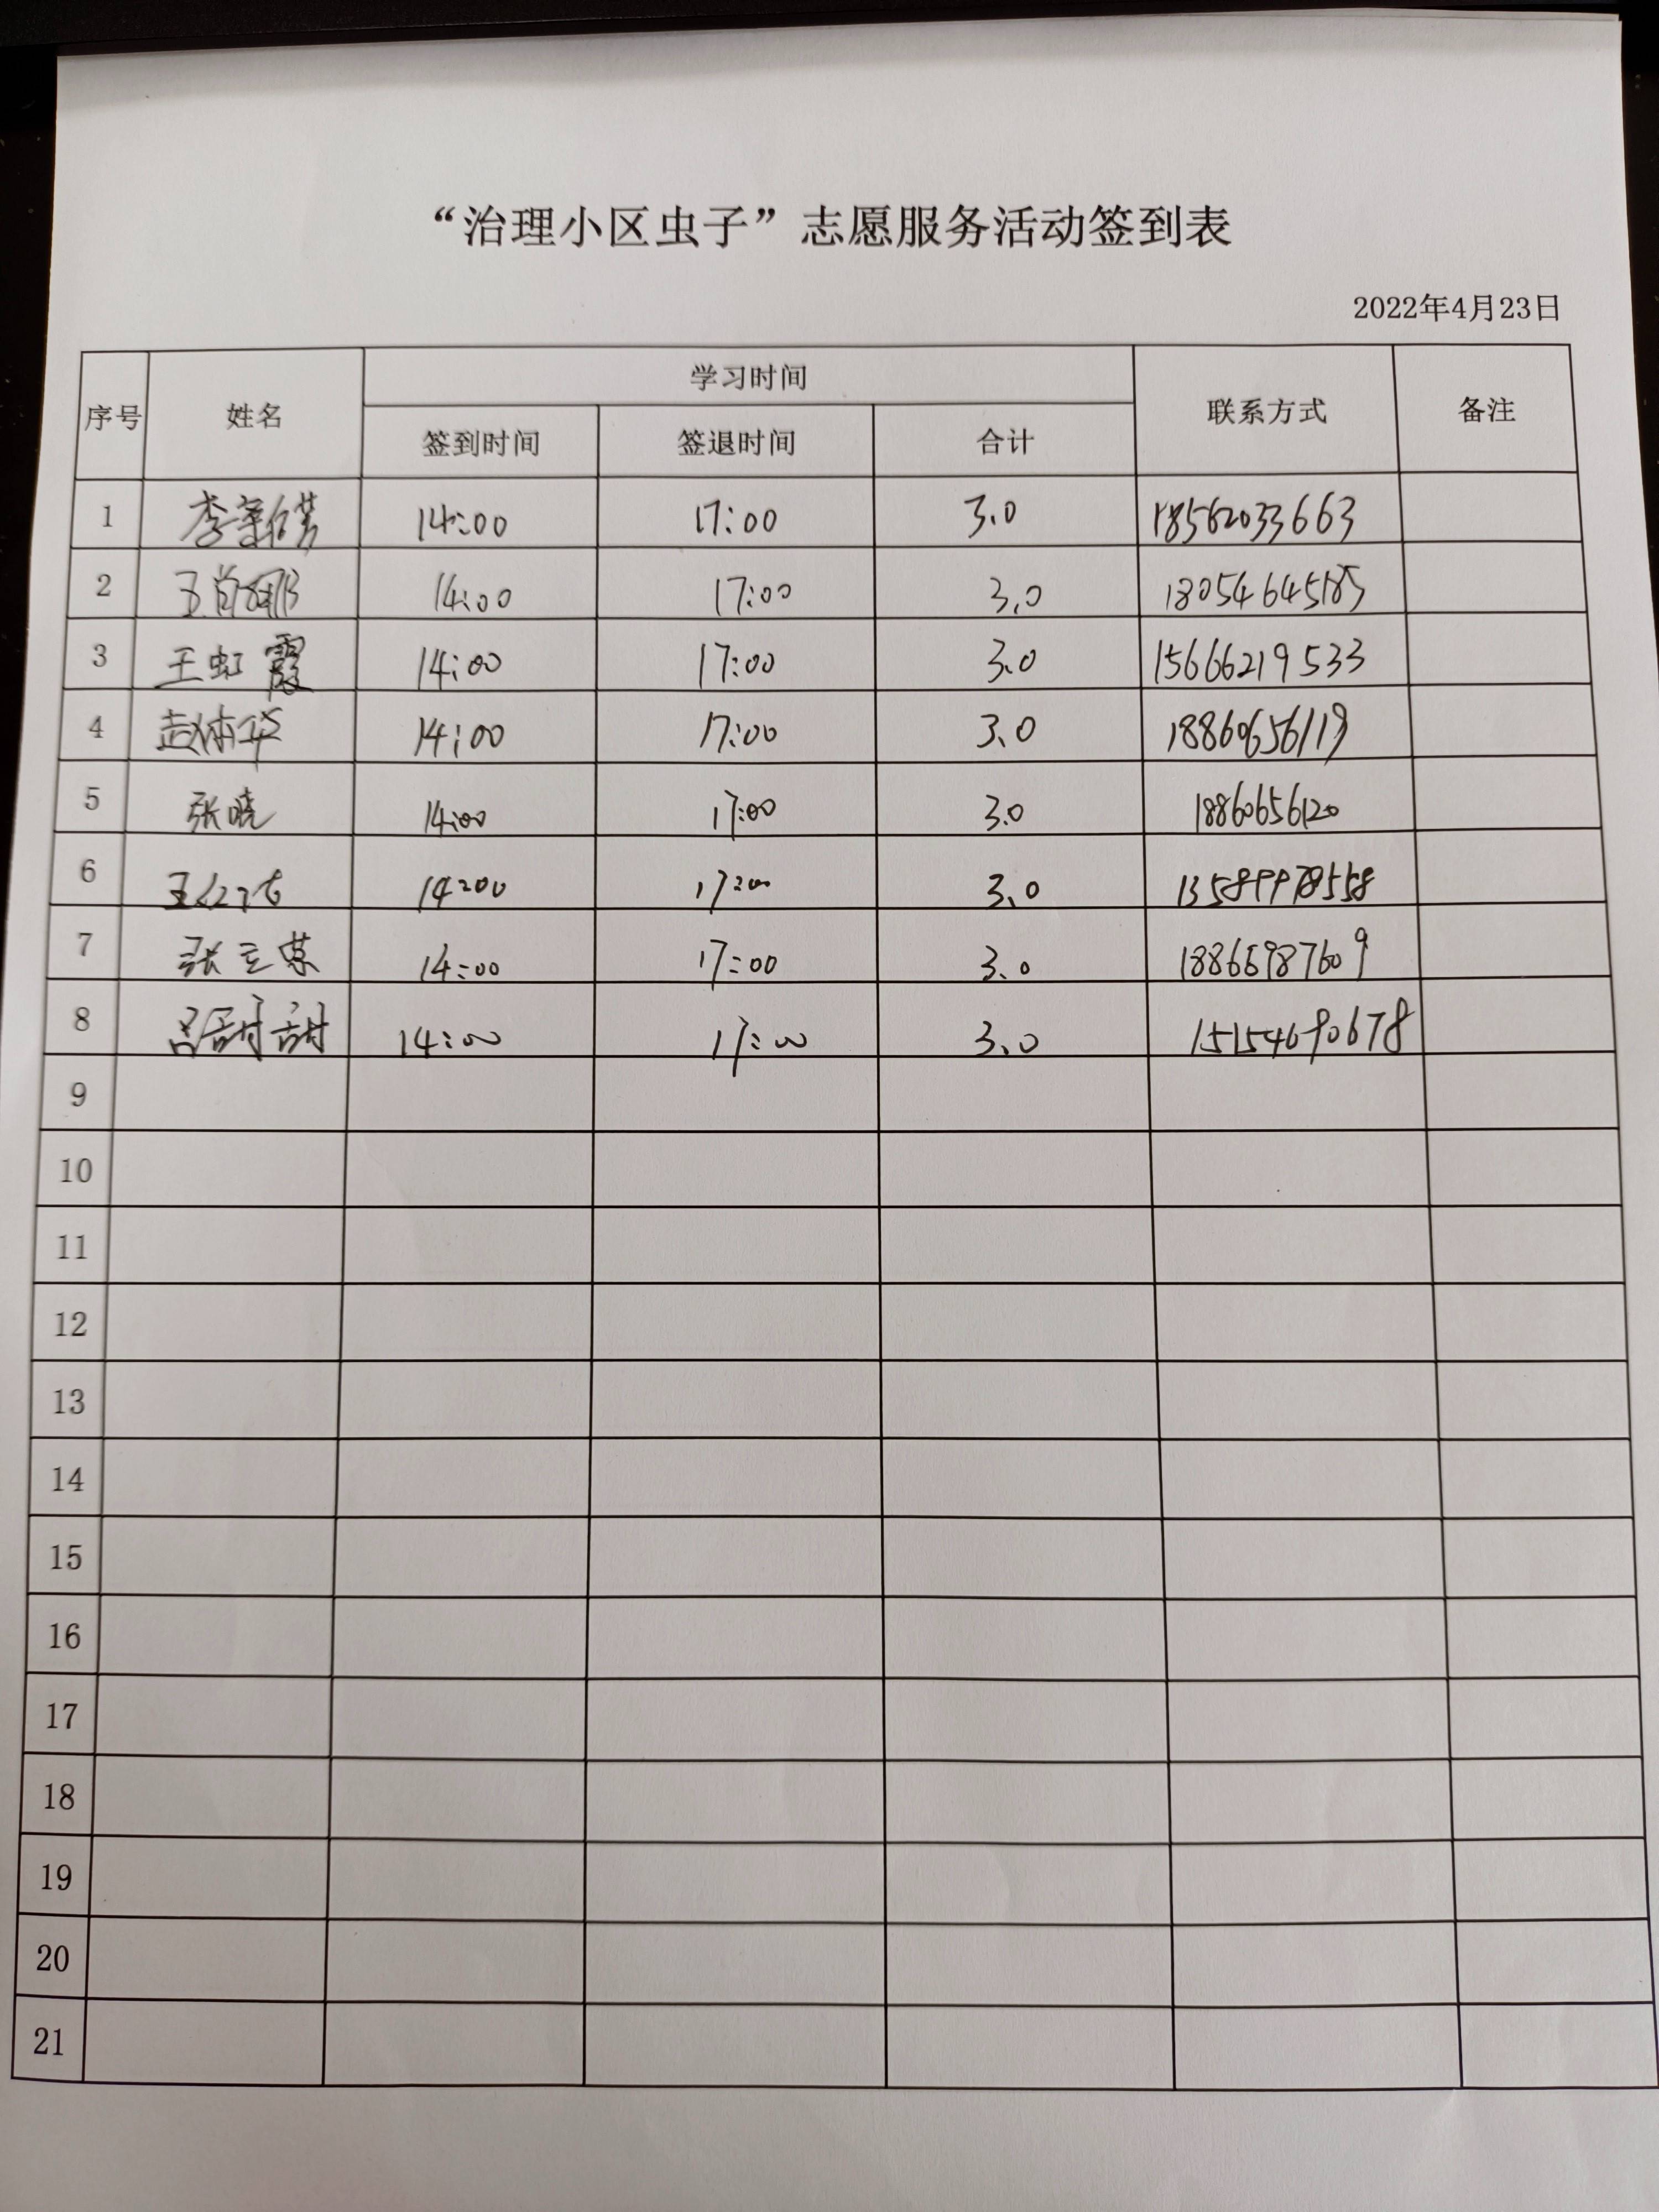 “治理小区虫子”志愿服务活动签到表
2022年4月23日
序号 姓名 学习时间 联系方式 备注
签到时间 签退时间 合计
1 李 14:00 17:00 3.0 18562033663
2 王 14:00 17:00 3.0 18054645185
3 王虹霞 14:00 17:00 3.0 15666219533
4 赵 华 14:00 17:00 3.0 18860656119
5 张晓 14:00 17:00 3.0 18860656120
6 王 14:00 17:00 3.0 13589978558
7 张立荣 14:00 17:00 3.0 18866987609
8 吕甜甜 14:00 17:00 3.0 15154690678
9
10
11
12
13
14
15
16
17
18
19
20
21